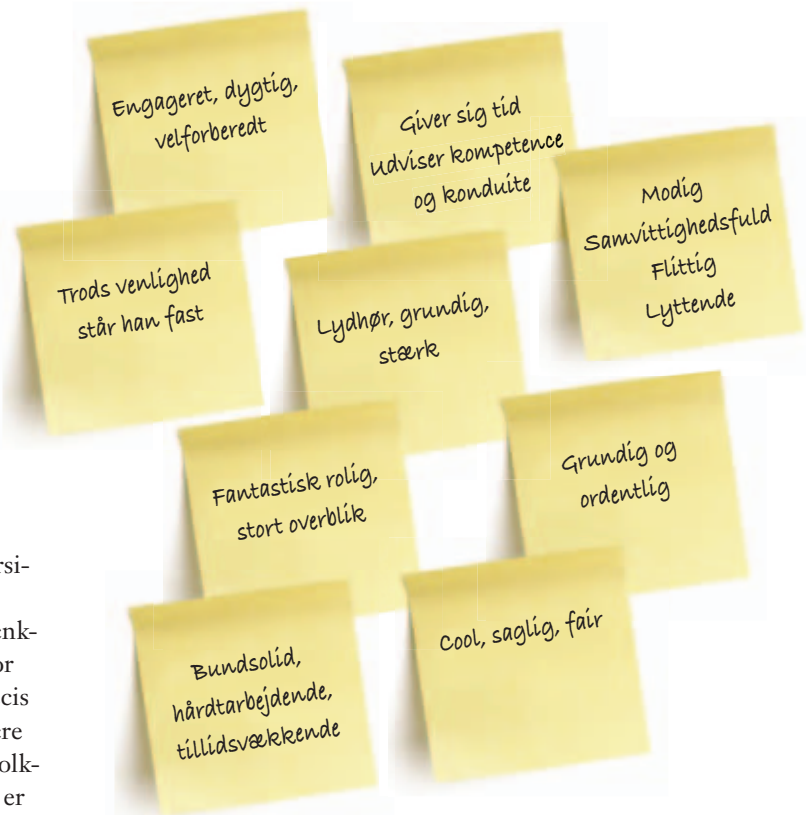 Engageret, dygtig,
velforberedt
Giver sig tid
Udviser kompetence
og konduite
Modig
Samvittighedsfuld
Flittig
Lyttende
Trods venlighed
står han fast
Lydhør, grundig,
stærk
Fantastisk rolig,
stort overblik
Grundig og
ordentlig
Bundsolid,
hårdtarbejdende,
tillidsvækkende
Cool, saglig, fair
rsi-
enk-
or
cis
ere
olk-
er